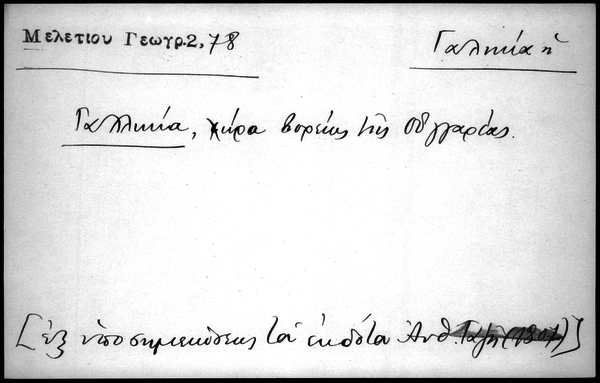 Μελετίου Γεωγρ. 2, 78
Γαλικία ἡ
Γαλλικία, χώρα βορείως τῆς Οὐγγαρίας.
[ἐξ ὑποσημειώσεως τοῦ ἐκδότα Ἀνθ. Γαζῆ (1807)]